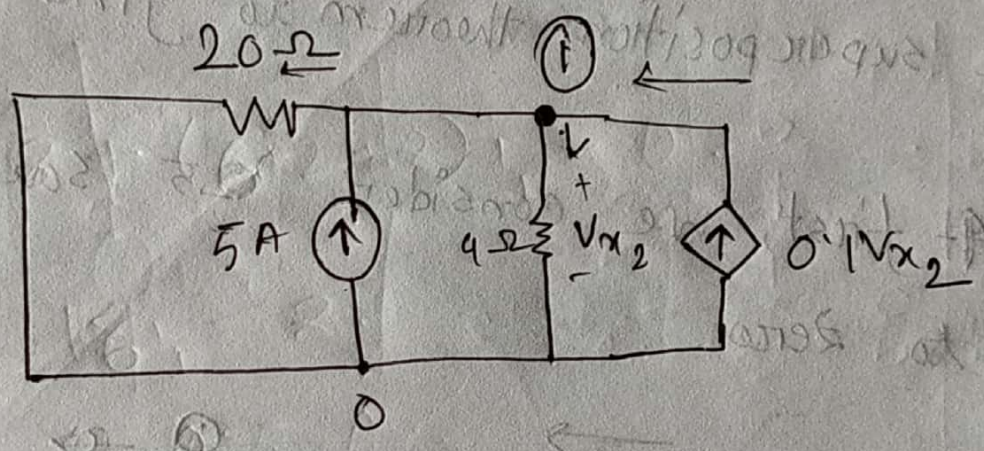 20Ω
1
V
+
5A
4Ω
Vx2
0.1Vx2
-
0